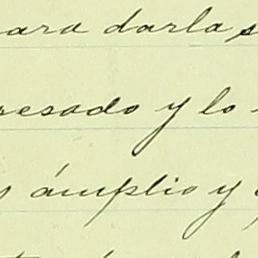 para darla
resado y lo
ámplio y